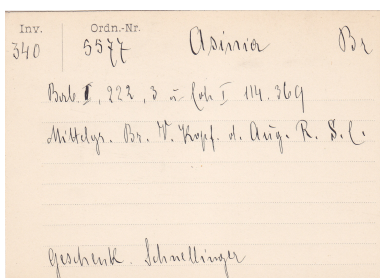 Inv. Ordn.-Nr.
340 5577 Asinia Br
Bab. I, 222, 3 u Coh I 114. 369
Mittelgr. Br. V. Kopf. d. Aug. R. S. C.
Geschenk. Schnellinger